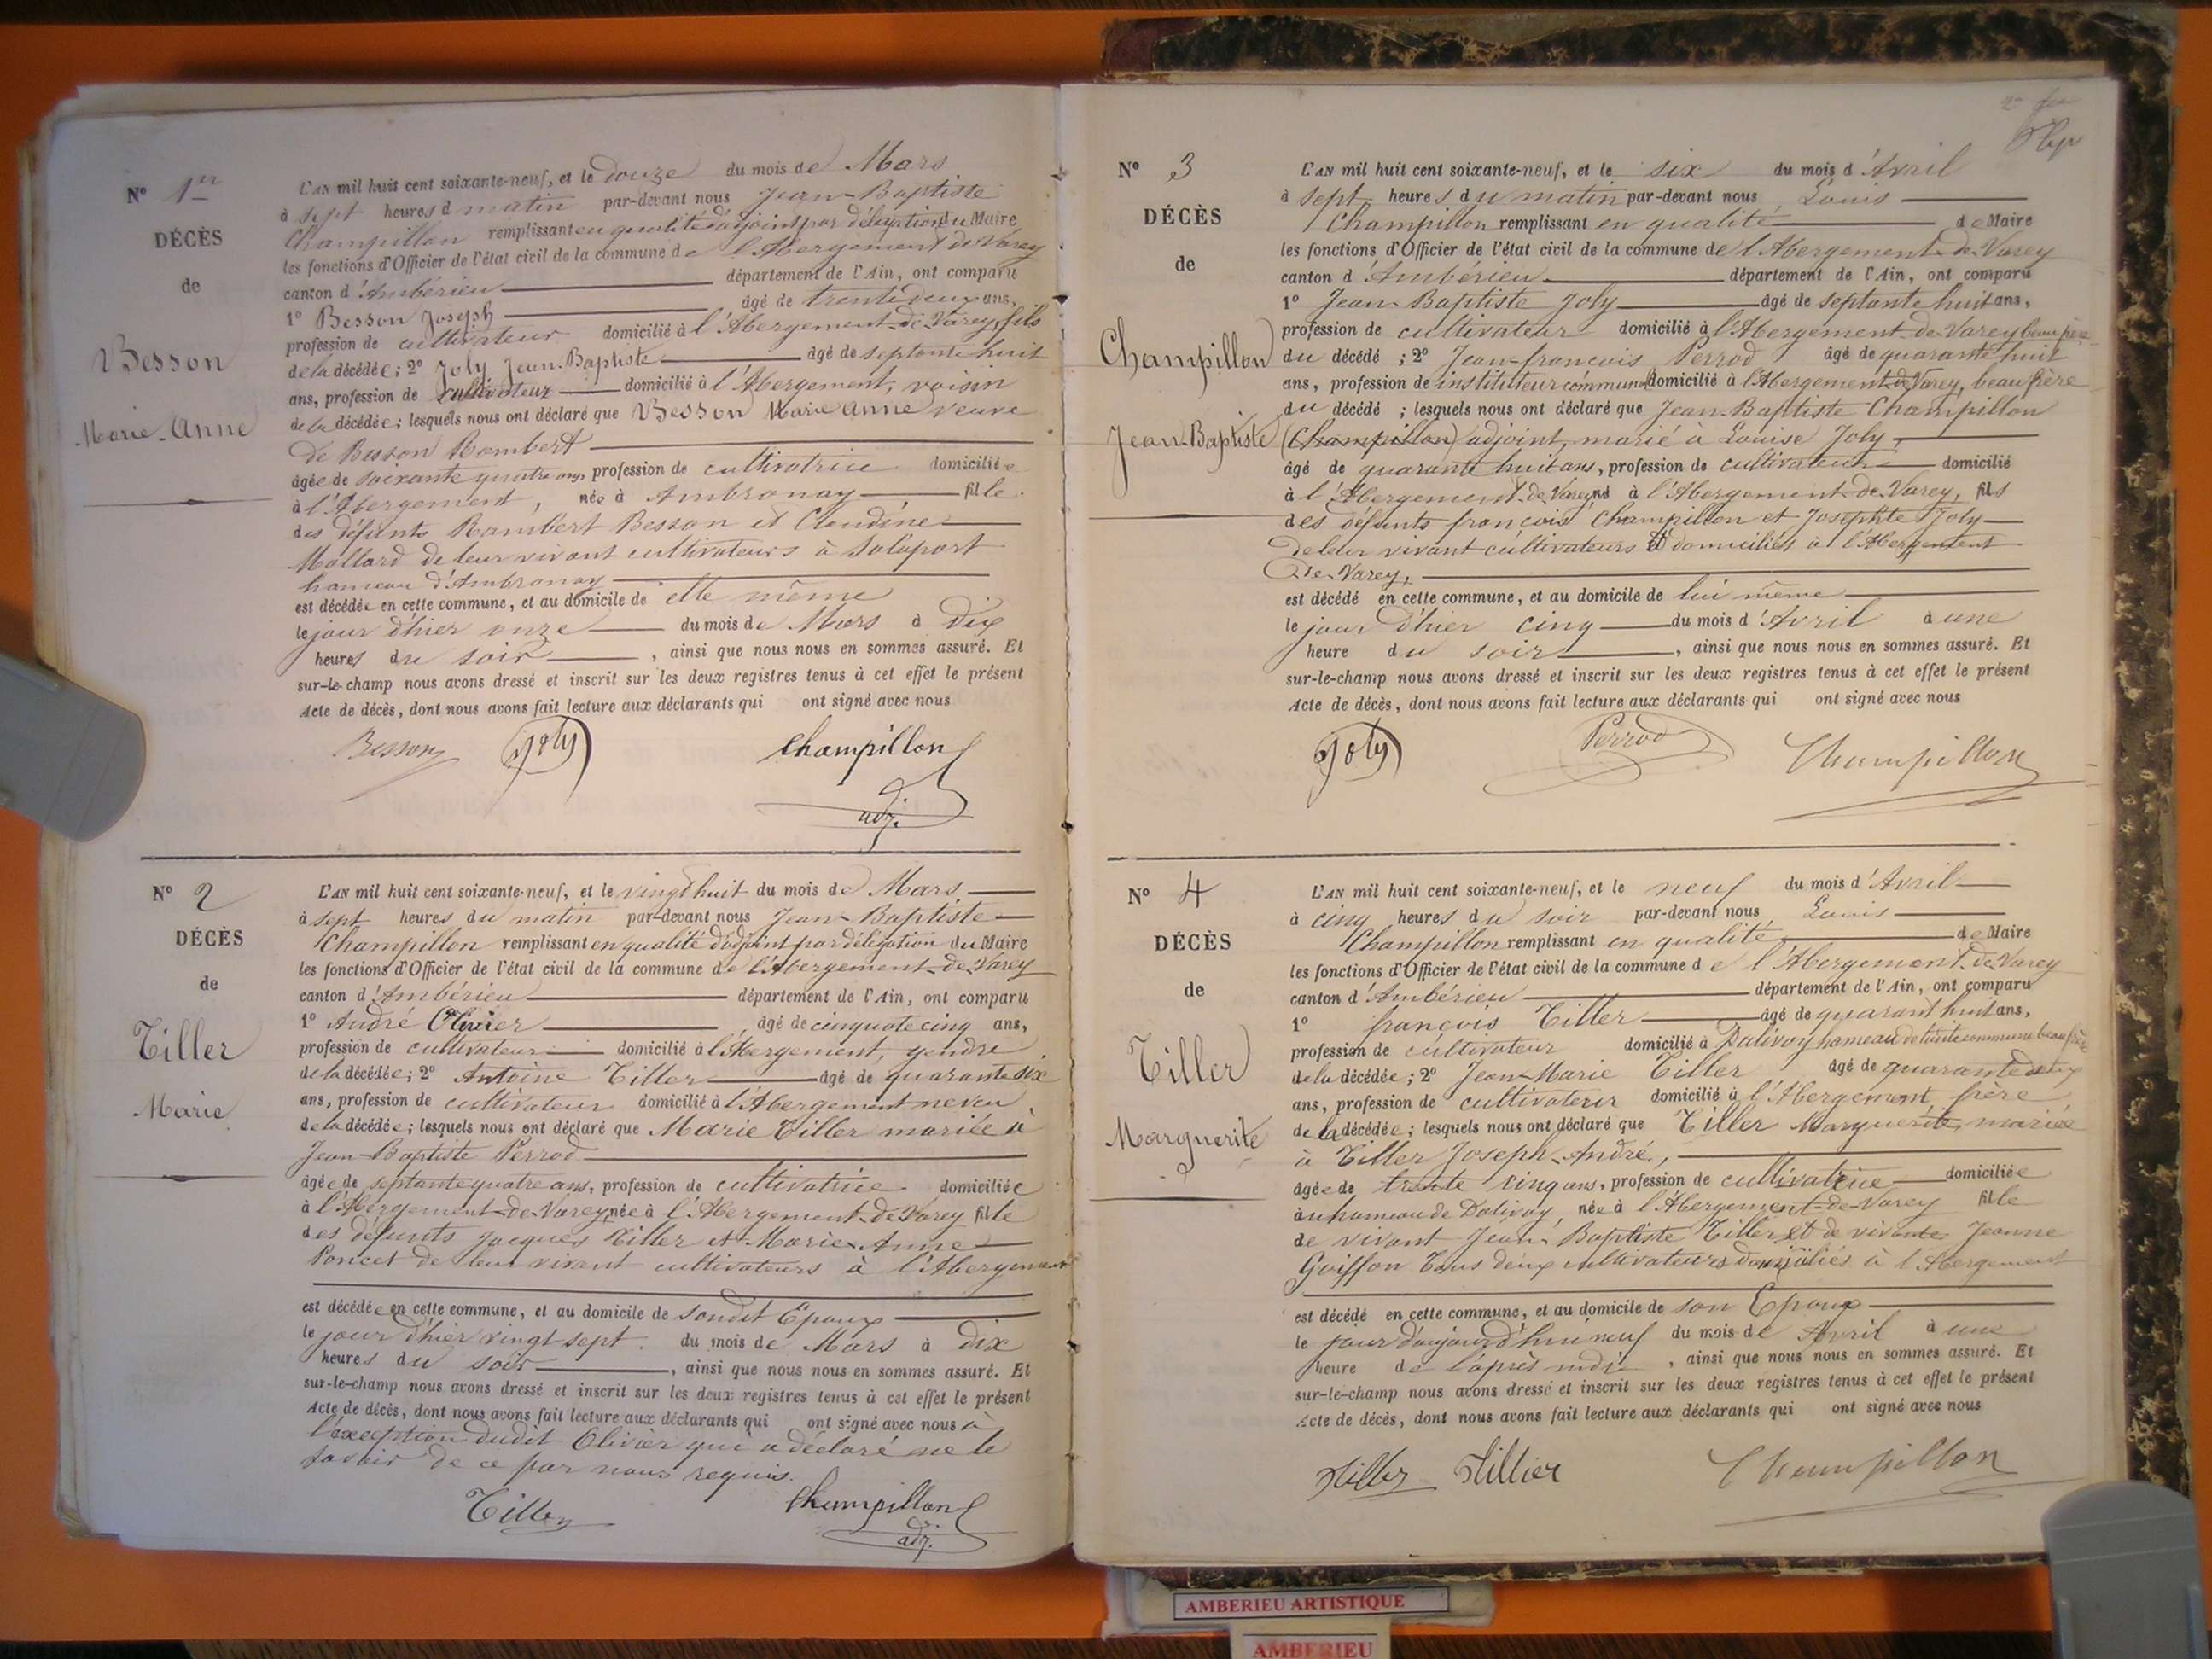 N° 1er
DÉCÈS
de
Besson
Marie-Anne
L'AN mil huit cent soixante-neuf, et le douze du mois de Mars
à sept heures d matin par-devant nous Jean-Baptiste
Champillon remplissant en qualité d'adjoint par délégation du Maire
les fonctions d'Officier de l'état civil de la commune de l'Abergement de Varey
canton d'Ambérieu département de l'Ain, ont comparu
1° Besson Joseph âgé de trente deux ans,
profession de cultivateur domicilié à l'Abergement-de-Varey, fils
de la décédée; 2° Joly Jean-Baptiste âgé de septante huit
ans, profession de cultivateur domicilié à l'Abergement, voisin
de la décédée; lesquels nous ont déclaré que Besson Marie Anne veuve
de Besson Rambert
âgée de soixante quatre ans, profession de cultivatrice domiciliée
à l'Abergement, née à Ambronay fille
des défunts Rambert Besson et Claudine
Mollard de leur vivant cultivateurs à Salaport
hameau d'Ambronay
est décédée en cette commune, et au domicile de elle même
le jour d'hier onze du mois de Mars à dix
heures du soir, ainsi que nous nous en sommes assuré. Et
sur-le-champ nous avons dressé et inscrit sur les deux registres tenus à cet effet le présent
Acte de décès, dont nous avons fait lecture aux déclarants qui ont signé avec nous
Besson Joly Champillon
adj.
N° 2
DÉCÈS
de
Tiller
Marie
L'AN mil huit cent soixante-neuf, et le vingt huit du mois de Mars
à sept heures du matin par-devant nous Jean-Baptiste
Champillon remplissant en qualité d'adjoint par délégation du Maire
les fonctions d'Officier de l'état civil de la commune de l'Abergement-de-Varey
canton d'Ambérieu département de l'Ain, ont comparu
1° André Olivier âgé de cinquate cinq ans,
profession de cultivateur domicilié à l'Abergement, gendre
de la décédée; 2° Antoine Tiller âgé de quarante six
ans, profession de cultivateur domicilié à l'Abergement neveu
de la décédée; lesquels nous ont déclaré que Marie Tiller mariée à
Jean-Baptiste Perrod
âgée de septante quatre ans, profession de cultivatrice domiciliée
à l'Abergement-de-Varey, née à l'Abergement-de-Varey fille
des défunts Jacques Tiller et Marie-Anne
Poncet de leur vivant cultivateurs à l'Abergement
est décédée en cette commune, et au domicile de son dit Epoux
le jour d'hier vingt sept du mois de Mars à dix
heures du soir, ainsi que nous nous en sommes assuré. Et
sur-le-champ nous avons dressé et inscrit sur les deux registres tenus à cet effet le présent
Acte de décès, dont nous avons fait lecture aux déclarants qui ont signé avec nous à
l'exception dudit Olivier qui a déclaré ne le
savoir de ce par nous requis.
Tiller Champillon
adj.
N° 3
DÉCÈS
de
Champillon
Jean-Baptiste
L'AN mil huit cent soixante-neuf, et le six du mois d'Avril
à sept heures du matin par-devant nous, Louis
Champillon remplissant en qualité de Maire
les fonctions d'Officier de l'état civil de la commune de l'Abergement-de-Varey
canton d'Ambérieu département de l'Ain, ont comparu
1° Jean-Baptiste Joly âgé de septante huit ans,
profession de cultivateur domicilié à l'Abergement-de-Varey beau père
du décédé; 2° Jean-françois Perrod âgé de quarante huit
ans, profession de instituteur communal domicilié à l'Abergement-de-Varey, beau frère
du décédé; lesquels nous ont déclaré que Jean-Baptiste Champillon
(Champillon) adjoint, marié à Louise Joly
âgé de quarante huit ans, profession de cultivateur domicilié
à l'Abergement-de-Varey né à l'Abergement-de-Varey, fils
des défunts françois Champillon et Josephte Joly
de leur vivant cultivateurs et domiciliés à l'Abergement
de-Varey,
est décédé en cette commune, et au domicile de lui même
le jour d'hier cinq du mois d'Avril à une
heure du soir, ainsi que nous nous en sommes assuré. Et
sur-le-champ nous avons dressé et inscrit sur les deux registres tenus à cet effet le présent
Acte de décès, dont nous avons fait lecture aux déclarants qui ont signé avec nous
Joly Perrod Champillon
N° 4
DÉCÈS
de
Tiller
Marguerite
L'AN mil huit cent soixante-neuf, et le neuf du mois d'Avril
à cinq heures du soir par-devant nous, Louis
Champillon remplissant en qualité de Maire
les fonctions d'Officier de l'état civil de la commune de l'Abergement-de-Varey
canton d'Ambérieu département de l'Ain, ont comparu
1° françois Tiller âgé de quarant huit ans,
profession de cultivateur domicilié à Dalivoy hameau de ladite commune beau frère
de la décédée; 2° Jean-Marie Tiller âgé de quarante deux
ans, profession de cultivateur domicilié à l'Abergement, frère
de la décédée; lesquels nous ont déclaré que Tiller Marguerite, mariée
à Tiller Joseph-André,
âgée de trente cinq ans, profession de cultivatrice domiciliée
au hameau de Dalivoy, née à l'Abergement-de-Varey fille
de vivant Jean-Baptiste Tiller et de vivante Jeanne
Goiffon tous deux cultivateurs domiciliés à l'Abergement
est décédé en cette commune, et au domicile de son Epoux
le jour d'aujourd'hui neuf du mois de Avril à une
heure de l'après midi, ainsi que nous nous en sommes assuré. Et
sur-le-champ nous avons dressé et inscrit sur les deux registres tenus à cet effet le présent
Acte de décès, dont nous avons fait lecture aux déclarants qui ont signé avec nous
Tiller Tillier Champillon
AMBERIEU ARTISTIQUE
AMBERIEU